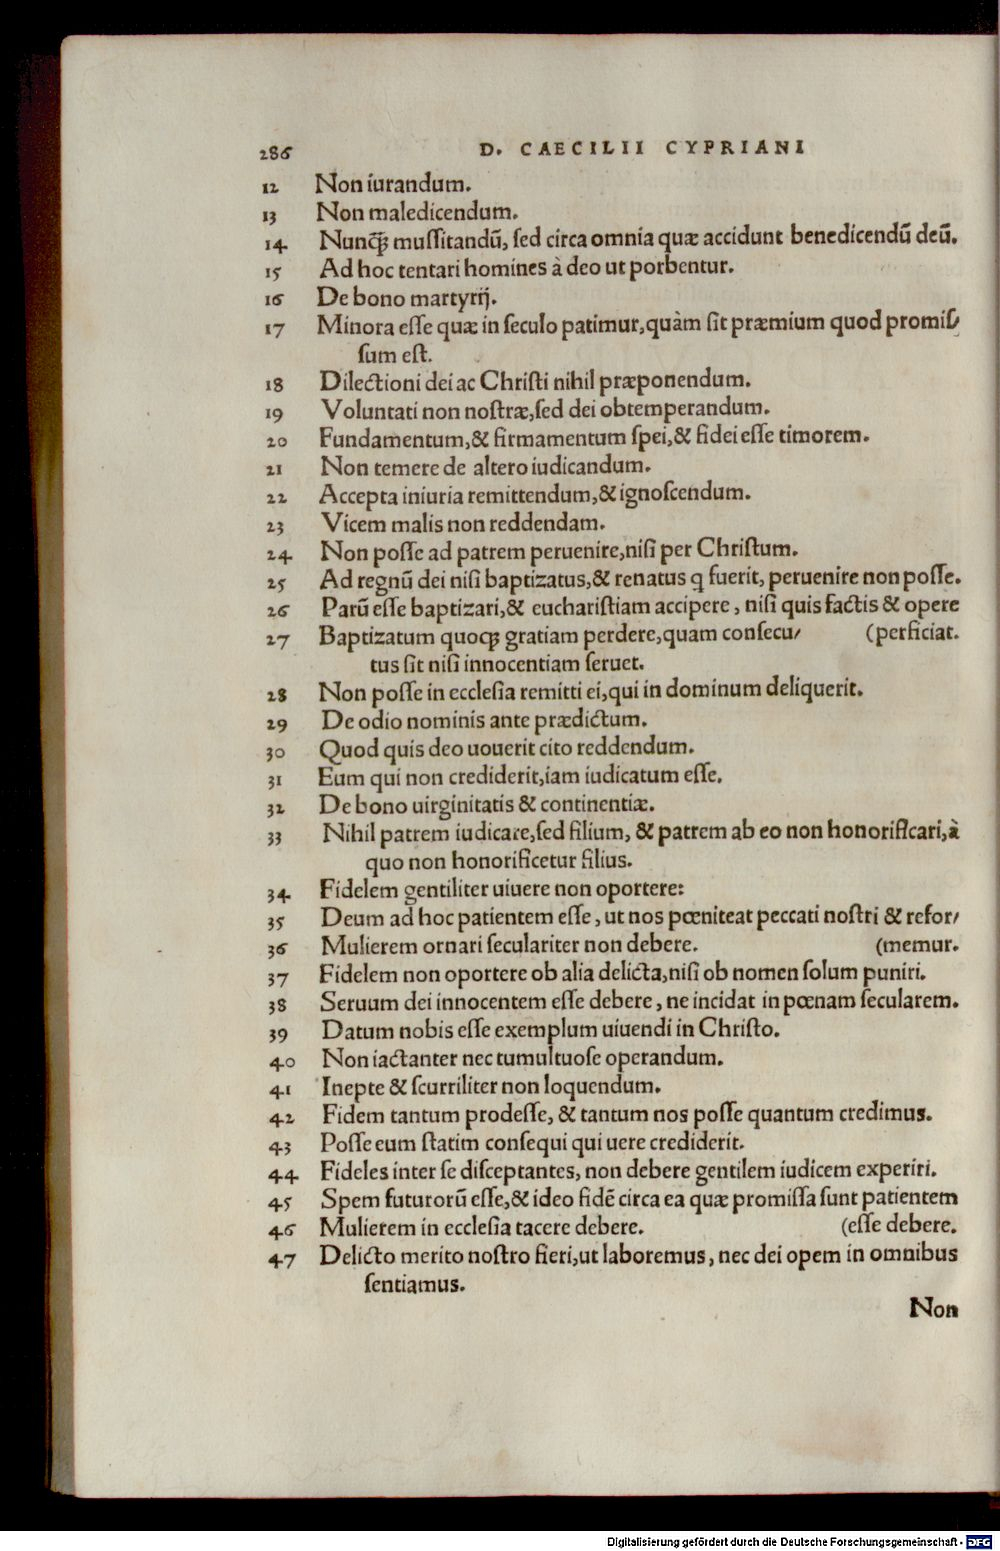 286 D. CAECILII CYPRIANI
12 Non iurandum.
13 Non maledicendum.
14 Nunq̃ꝫ muſſitandũ, ſed circa omnia quæ accidunt benedicendũ deũ.
15 Ad hoc tentari homines à deo ut porbentur.
16 De bono martyrij.
17 Minora eſſe quæ in ſeculo patimur, quàm ſit præmium quod promiſ⸗
ſum eſt.
18 Dilectioni dei ac Chriſti nihil præponendum.
19 Voluntati non noſtræ, ſed dei obtemperandum.
20 Fundamentum, & firmamentum ſpei, & fidei eſſe timorem.
21 Non temere de altero iudicandum.
22 Accepta iniuria remittendum, & ignoſcendum.
23 Vicem malis non reddendam.
24 Non poſſe ad patrem peruenire, niſi per Chriſtum.
25 Ad regnũ dei niſi baptizatus, & renatus q fuerit, peruenire non poſſe.
26 Parũ eſſe baptizari, & euchariſtiam accipere, niſi quis factis & opere
27 Baptizatum quoqꝫ gratiam perdere, quam conſecu⸗ (perficiat.
tus ſit niſi innocentiam ſeruet.
28 Non poſſe in eccleſia remitti ei, qui in dominum deliquerit.
29 De odio nominis ante prædictum.
30 Quod quis deo uouerit cito reddendum.
31 Eum qui non crediderit, iam iudicatum eſſe.
32 De bono uirginitatis & continentiæ.
33 Nihil patrem iudicare, ſed filium, & patrem ab eo non honorificari, à
quo non honorificetur filius.
34 Fidelem gentiliter uiuere non oportere:
35 Deum ad hoc patientem eſſe, ut nos pœniteat peccati noſtri & refor⸗
36 Mulierem ornari ſeculariter non debere. (memur.
37 Fidelem non oportere ob alia delicta, niſi ob nomen ſolum puniri.
38 Seruum dei innocentem eſſe debere, ne incidat in pœnam ſecularem.
39 Datum nobis eſſe exemplum uiuendi in Chriſto.
40 Non iactanter nec tumultuoſe operandum.
41 Inepte & ſcurriliter non loquendum.
42 Fidem tantum prodeſſe, & tantum nos poſſe quantum credimus.
43 Poſſe eum ſtatim conſequi qui uere crediderit.
44 Fideles inter ſe diſceptantes, non debere gentilem iudicem experiri.
45 Spem futurorũ eſſe, & ideo fidẽ circa ea quæ promiſſa ſunt patientem
46 Mulierem in eccleſia tacere debere. (eſſe debere.
47 Delicto merito noſtro fieri, ut laboremus, nec dei opem in omnibus
ſentiamus.
Non
Digitalisierung gefördert durch die Deutsche Forschungsgemeinschaft - DFG